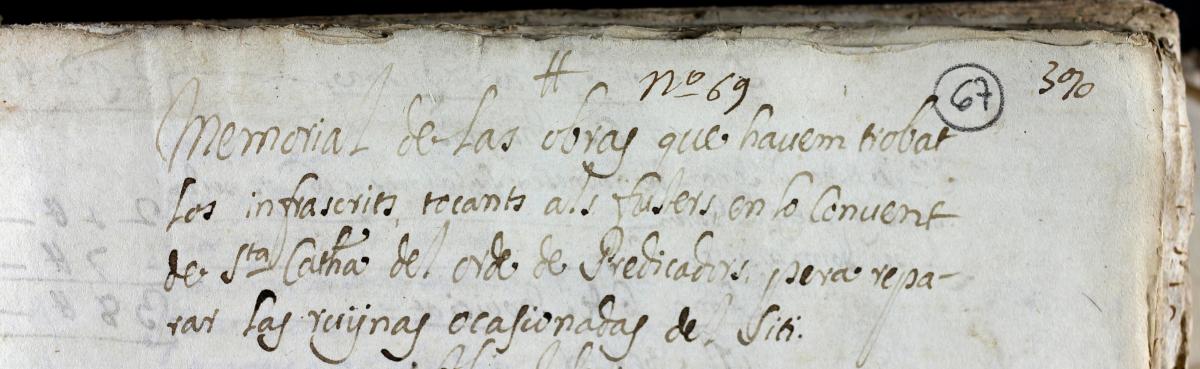 # Nº 69 67 390
Memorial de las obras que havem trobat
los infrascrits, tocants als fusters, en lo Convent
de Sta Cathª del orde de Predicadors, pera repa-
rar las ruijnas ocasionadas del Siti.